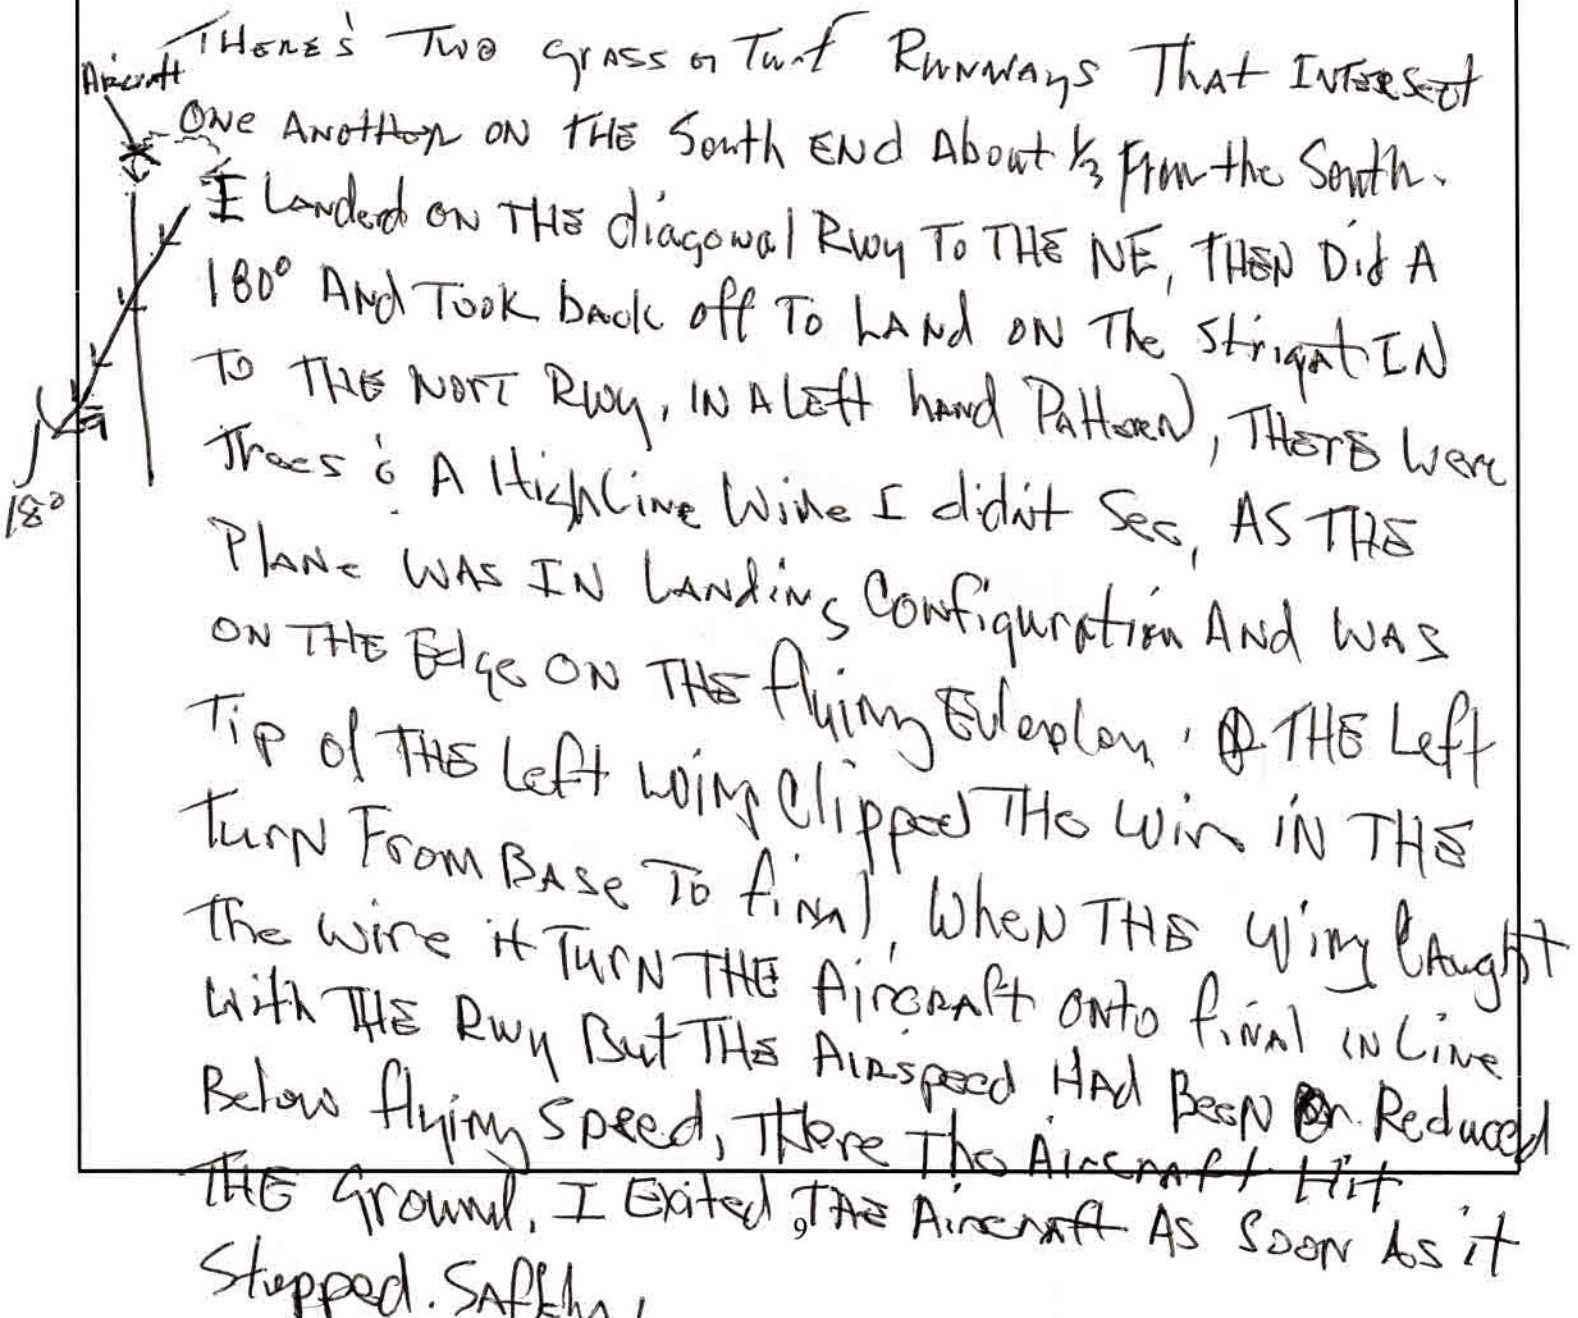 THERE'S Two grass or Turf Runways That Intersect
Aircraft
One Another ON THE South END About 1/3 From the South.
I Landed ON THE diagonal Rwy To THE NE, THEN Did A
180° And Took back off To LAND ON The Strigat IN
To THE NORT Rwy, IN A Left hand Pattern, THERE were
Trees & A HighLine Wire I didn't See, AS THE
PLANe WAS IN LANding Configuration AND WAS
ON THE Edge ON THE flying THE Left
Tip of THE Left wing Clipped THe Wire IN THE
Turn From BASe To final, WheN THE Wing Caught
The wire it TurN THE AircrAft onto final IN LiNe
With THE Rwy But THE Airspeed HAd BeeN Reduced
Below flying Speed, THere The Aircraft Hit
THE Ground, I Exited THE Aircraft As SooN As it
Stopped. SAfely.
180